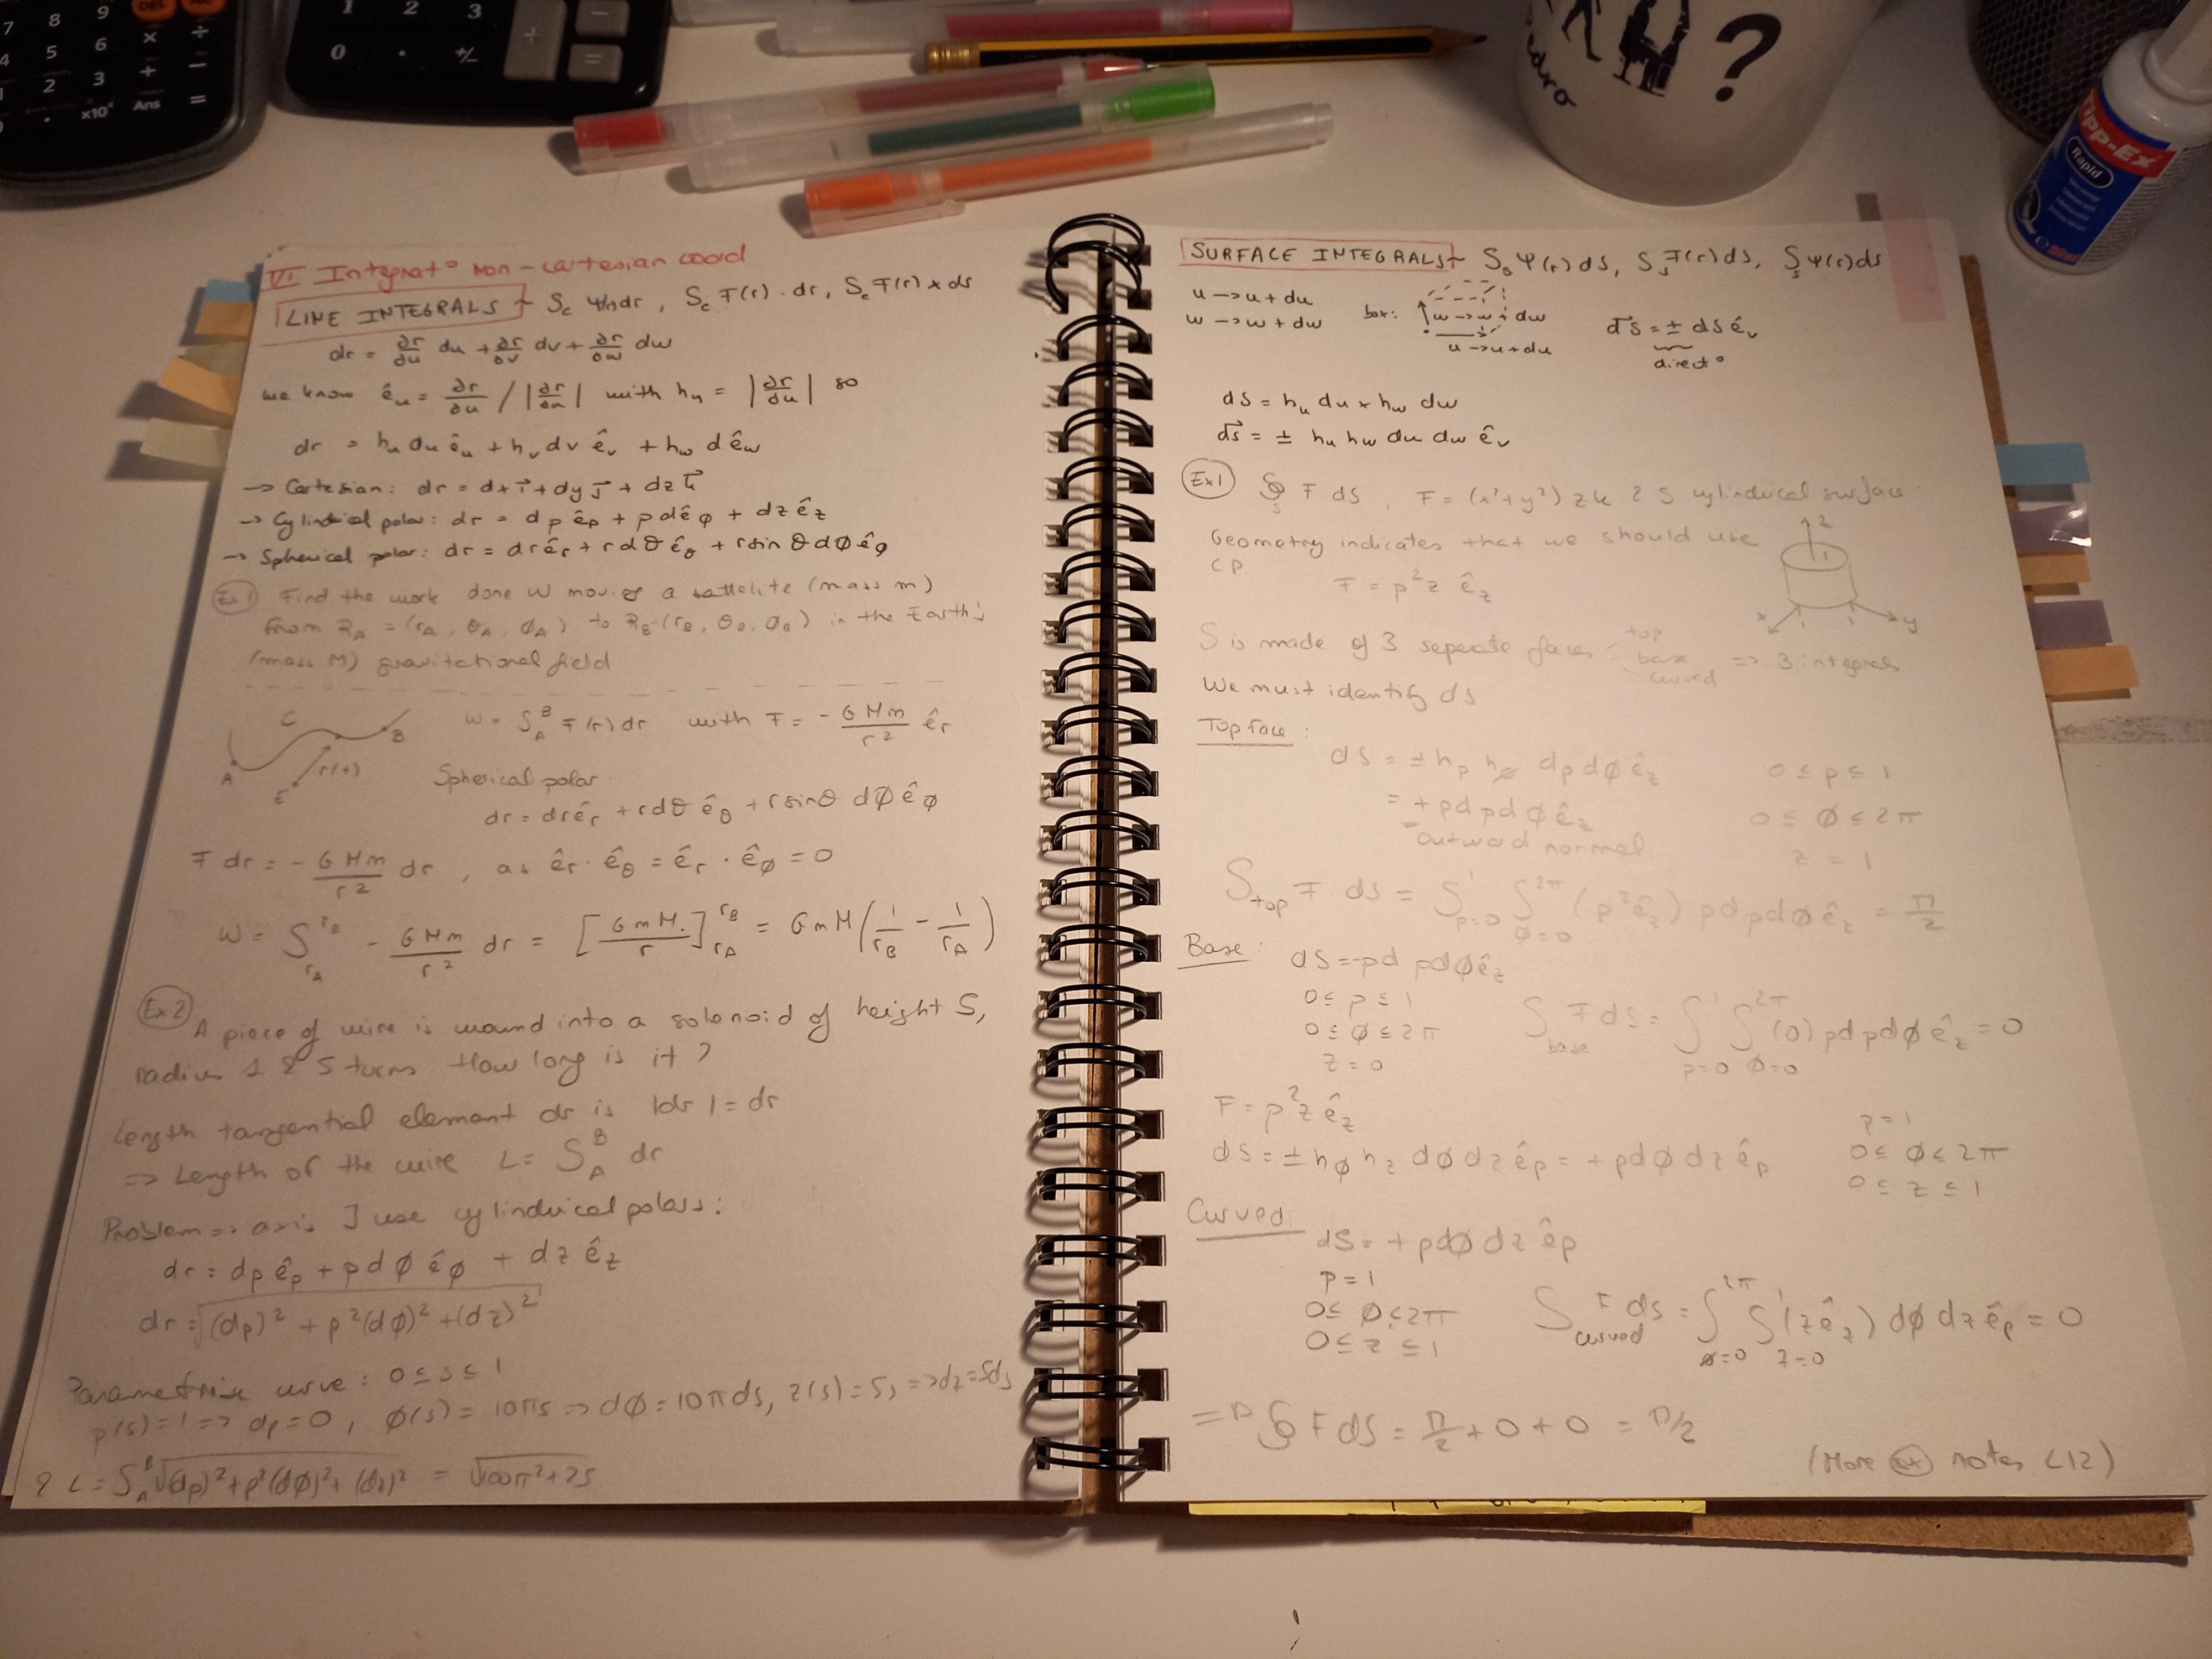 VI Integrat° non-cartesian coord
LINE INTEGRALS ∫c ψ(r)dr, ∫c F(r).dr, ∫c F(r)×dr
dr = ∂r/∂u du + ∂r/∂v dv + ∂r/∂w dw
we know êu = ∂r/∂u / |∂r/∂u| with hu = |∂r/∂u| so
dr = hu du êu + hv dv êv + hw d êw
→ Cartesian: dr = dx i + dy j + dz k
→ Cylindical polar: dr = dρ êρ + ρ dêφ + dz êz
→ Spherical polar: dr = dr êr + r dθ êθ + r sin θ dφ êφ
Ex1 Find the work done w moving a sattelite (mass m)
from RA = (rA, θA, φA) to RB (rB, θB, φB) in the Earth's
(mass M) gravitational field
A C B r(t)
W = ∫A^B F(r)dr with F = - GMm/r² êr
Spherical polar:
dr = dr êr + r dθ êθ + r sinθ dφ êφ
F dr = - GMm/r² dr, as êr . êθ = êr . êφ = 0
W = ∫rA^rB - GMm/r² dr = [GmM/r]rA^rB = GmM(1/rB - 1/rA)
Ex2 A piece of wire is wound into a solonoid of height 5,
radius 1 & 5 turns. How long is it?
Length tangential element dr is |dr| = dr
=> Length of the wire L = ∫A^B dr
Problem => axis I use cylindical polars:
dr = dρ êρ + ρ dφ êφ + dz êz
dr = √(dρ)² + ρ²(dφ)² + (dz)²
Parametrise curve: 0 ≤ s ≤ 1
ρ(s) = 1 => dρ = 0, φ(s) = 10πs => dφ = 10πds, z(s) = 5s => dz = 5ds
& L = ∫A^B √(dρ)² + ρ²(dφ)² + (dz)² = √100π² + 25
SURFACE INTEGRALS ∫s ψ(r)dS, ∫s F(r)dS, ∫s ψ(r)dS
u → u + du
w → w + dw
box: w → w + dw
u → u + du
dS = ± dS êv
direct°
dS = hu du × hw dw
dS = ± hu hw du dw êv
Ex1 ∮s F dS, F = (x² + y²) z k & S cylindical surface.
Geometry indicates that we should use
CP F = ρ² z êz
z x y
S is made of 3 separate faces - top - base - curved => 3 integrals
We must identify dS
Top face: dS = ± hρ hφ dρ dφ êz
= + ρ dρ dφ êz
outward normal
0 ≤ ρ ≤ 1
0 ≤ φ ≤ 2π
z = 1
∫top F dS = ∫ρ=0^1 ∫φ=0^2π (ρ² êz) ρ dρ dφ êz = π/2
Base: dS = -ρ dρ dφ êz
0 ≤ ρ ≤ 1
0 ≤ φ ≤ 2π
z = 0
∫base F dS = ∫ρ=0^1 ∫φ=0^2π (0) ρ dρ dφ êz = 0
F = ρ² z êz
dS = ± hφ hz dφ dz êρ = + ρ dφ dz êρ
ρ = 1
0 ≤ φ ≤ 2π
0 ≤ z ≤ 1
Curved dS = + ρ dφ dz êρ
ρ = 1
0 ≤ φ ≤ 2π
0 ≤ z ≤ 1
∫curved F dS = ∫φ=0^2π ∫z=0^1 (z êz) dφ dz êρ = 0
=> ∮ F dS = π/2 + 0 + 0 = π/2
(More ex notes L12)
Tipp-Ex
Rapid
7 8 9
4 5 6 × ÷
1 2 3 + −
. ×10ˣ Ans =
1 2 3
0 . +/-
+ − =
?